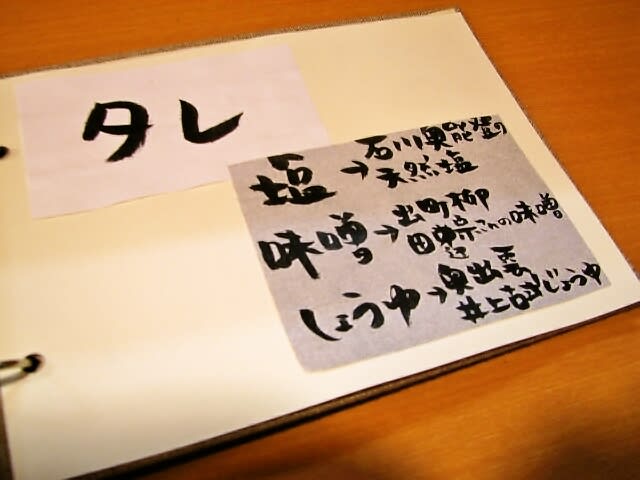 タレ
塩→石川奥能登の
天然塩
味噌→出町柳
田辺宗さんの味噌
しょうゆ→奥出雲
井上古式じょうゆ